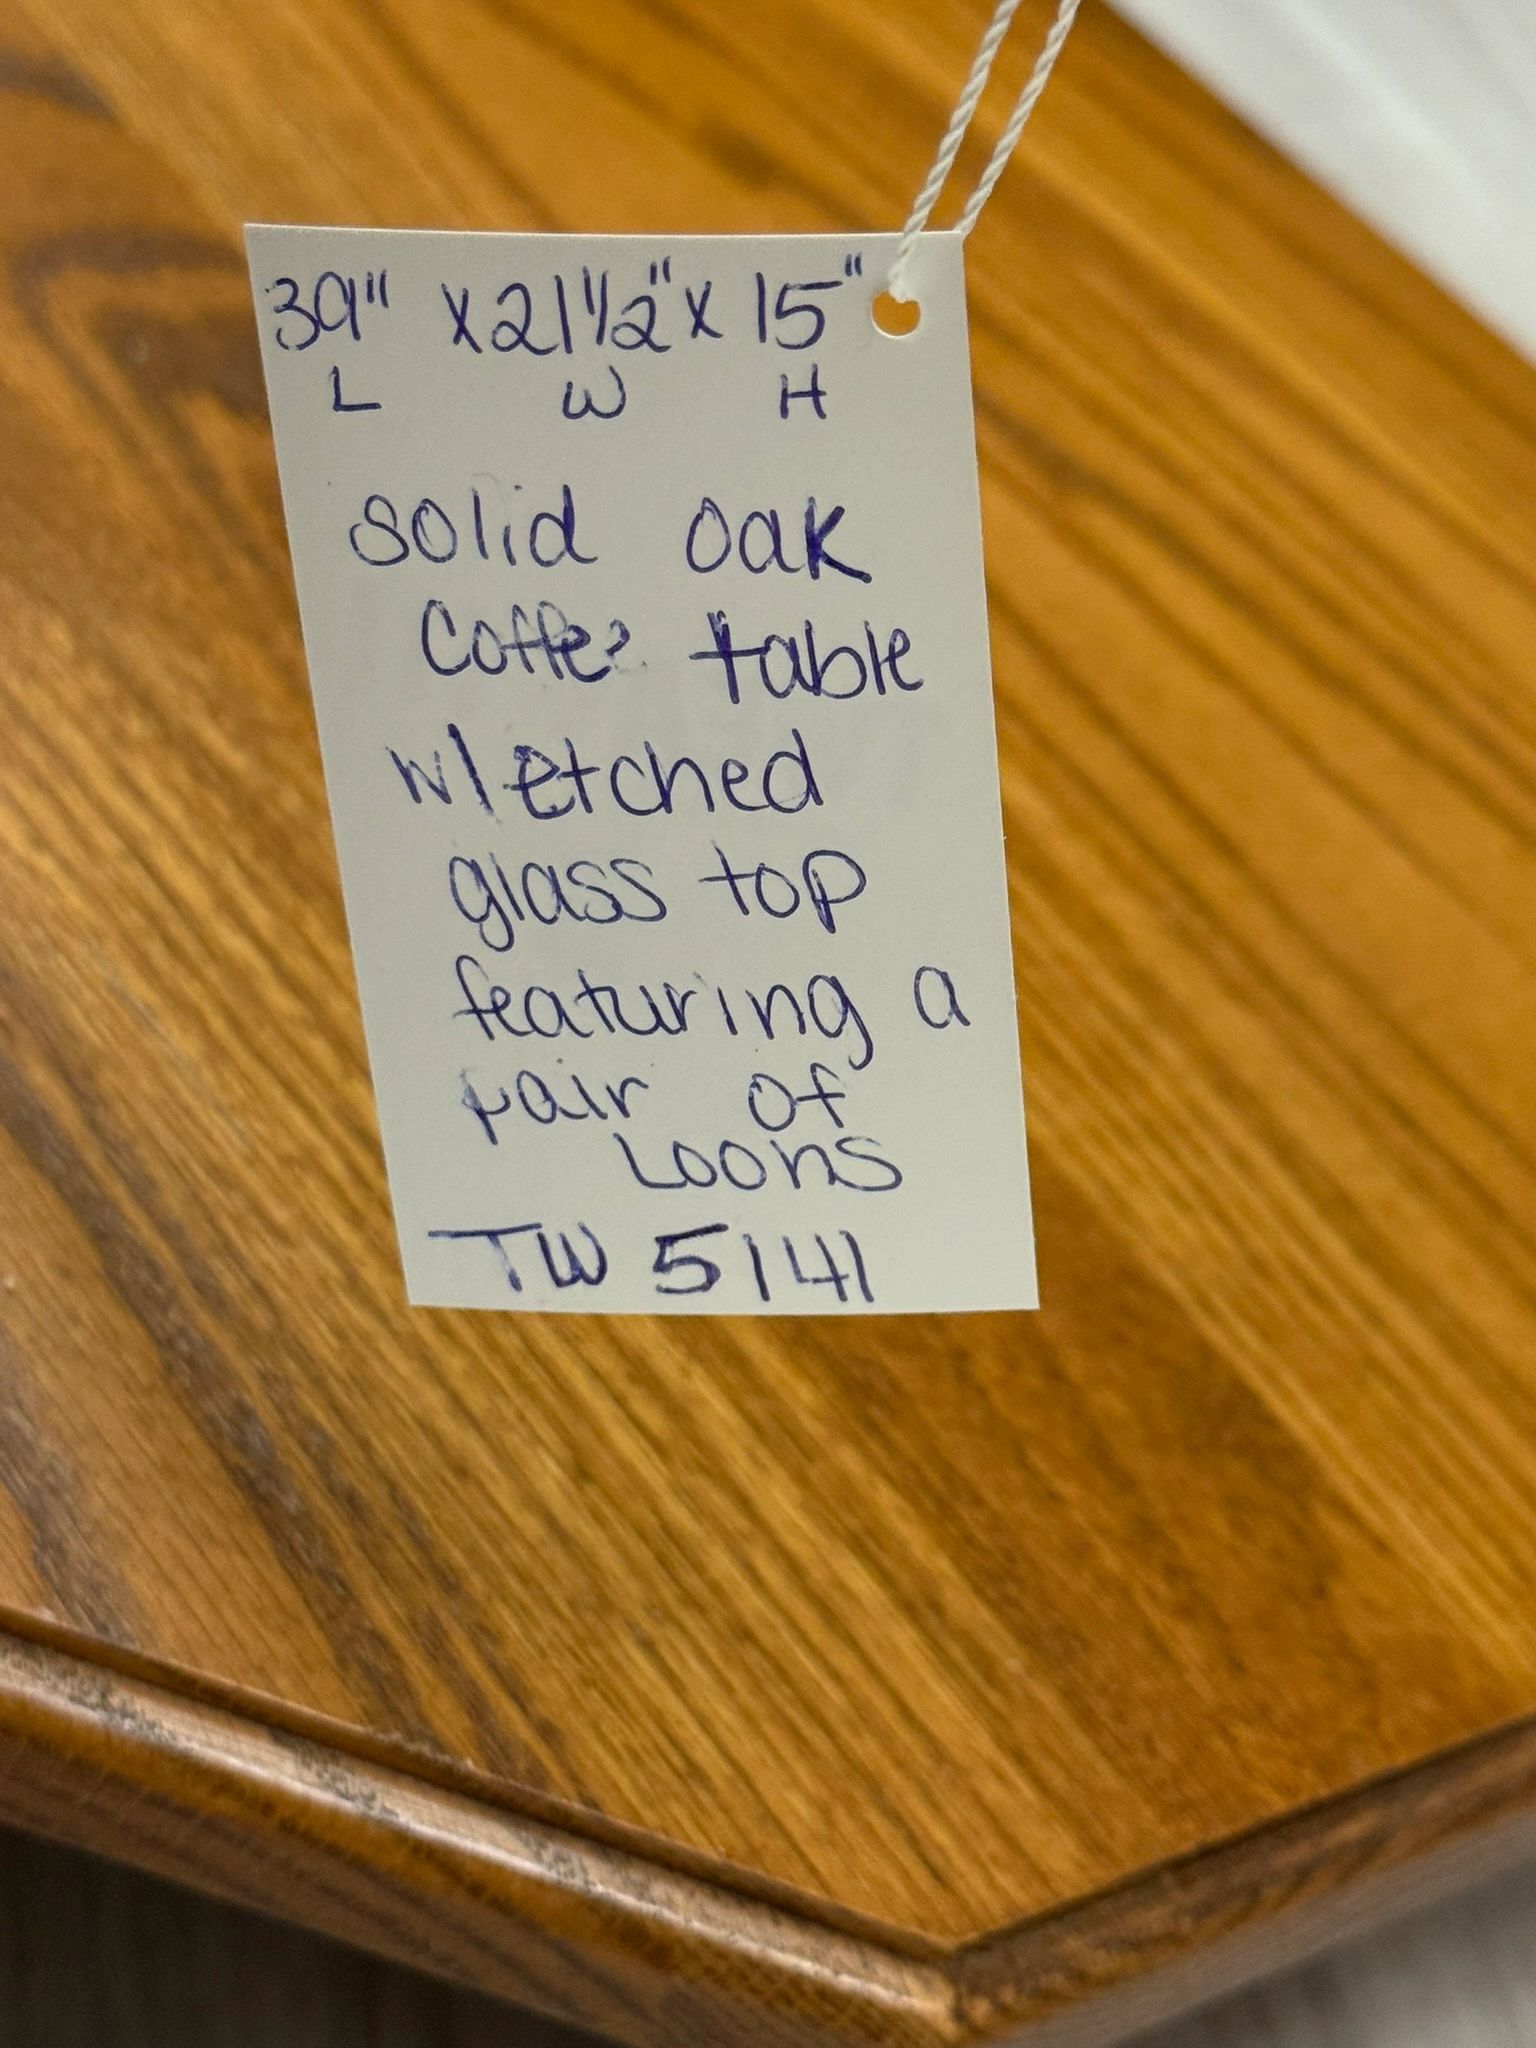 39" x 21 1/2" x 15"
L W H
solid oak
Coffee table
w/ etched
glass top
featuring a
pair of
Loons
TW 5141